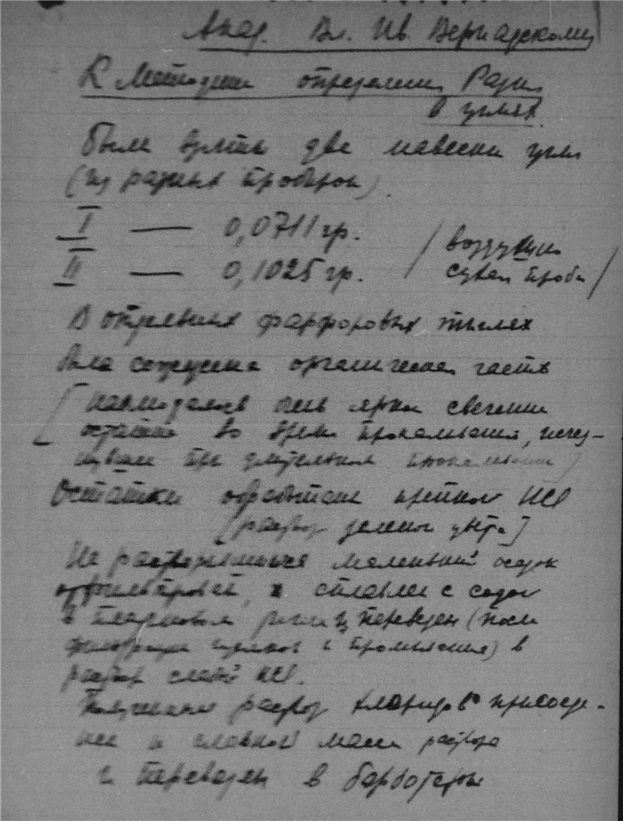 Акад. Вл. Ив. Вернадскому
К методике определения Радия
в углях.
Были взяты две навески угля
(из разных пробирок)
I — 0,0711 гр.
II — 0,1025 гр.
/воздушно
сухая проба/
В отдельных фарфоровых тиглях
была сожжена органическая часть
[наблюдалось очень яркое свечение
остатка во время прокаливания, исчез-
нувшее при длительном прокаливании]
Остатки обработаны крепкой HCl
[раствор зеленого цвета]
Не растворившийся маленький осадок
отфильтрован, и сплавлен с содой
в платиновом тигле и переведен (после
фильтрации и промывания) в
раствор слабой HCl.
Полученный раствор хлоридов присоеди-
нен к главной массе раствора
и переведен в барботеры